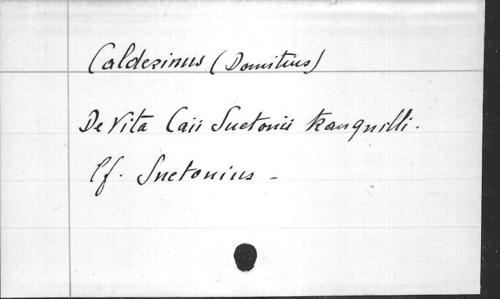 Calderinus (Domitius)
De Vita Caii Suetonii tranquilli.
Cf. Suetonius -